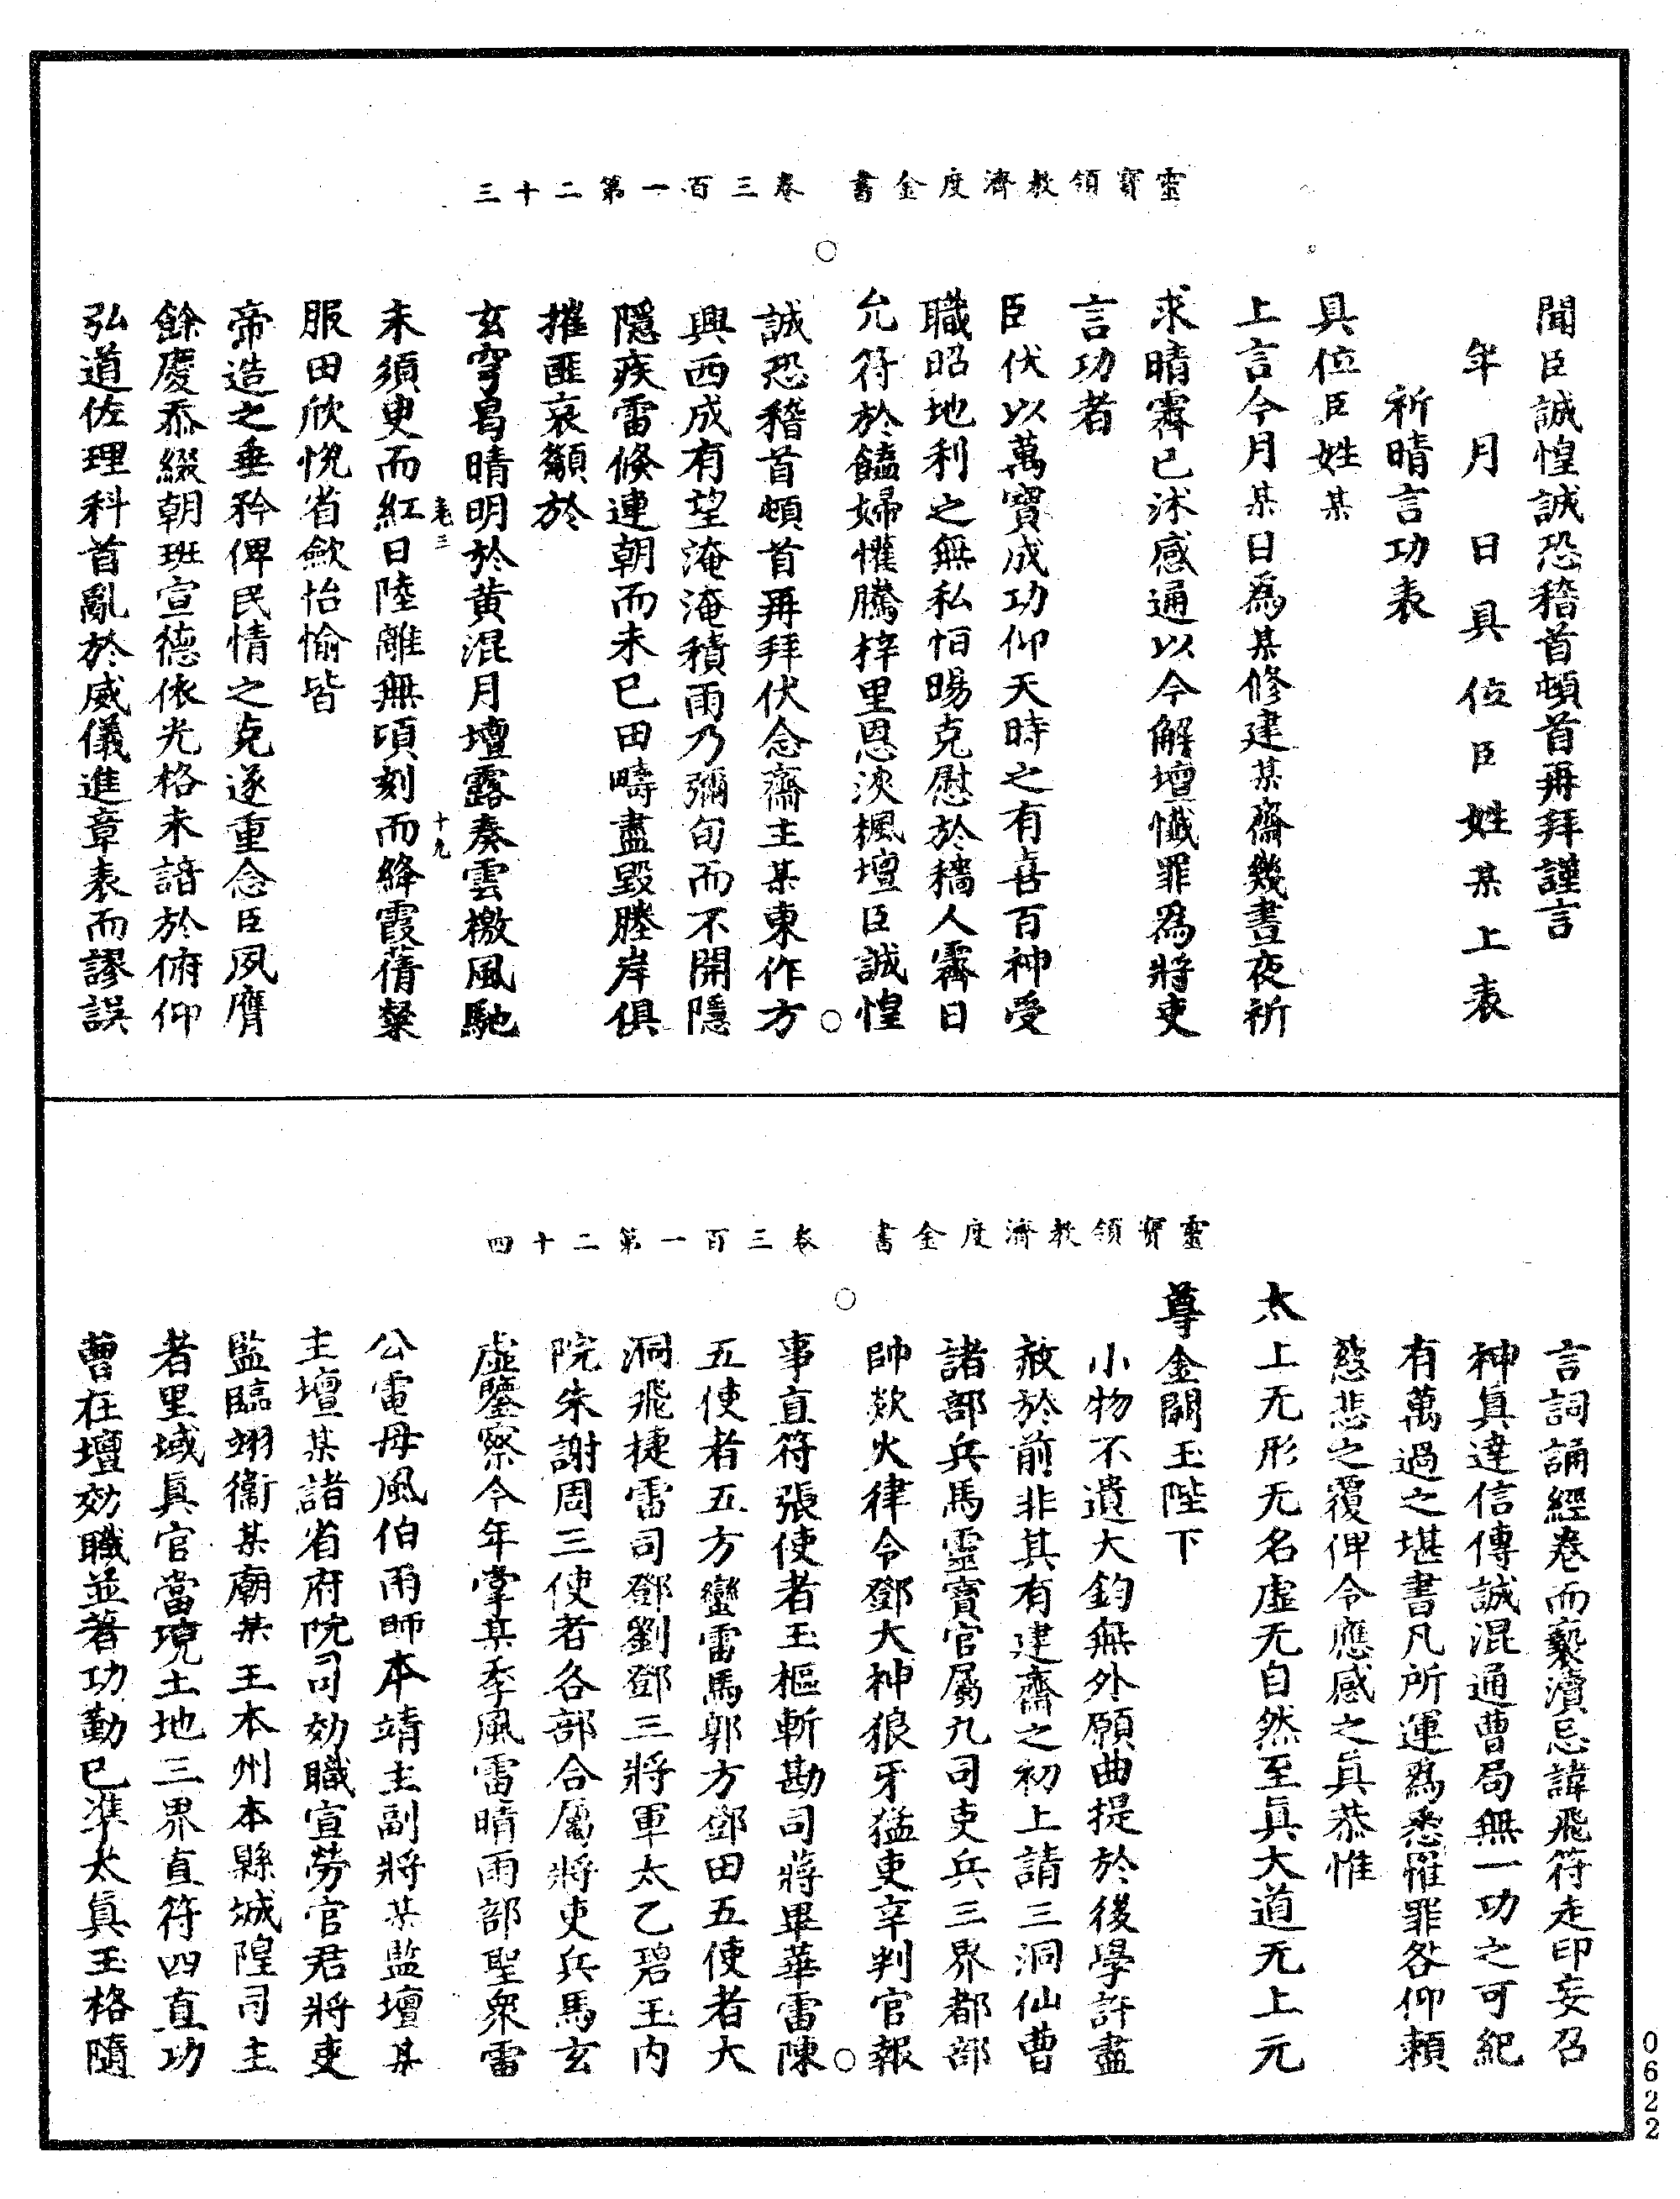 靈寶領教濟度金書 卷三百一第二十三
聞臣誠惶誠恐稽首頓首再拜謹言
年月日具位臣姓某上表
祈晴言功表
具位臣姓某
上言今月某日為某修建某齋幾晝夜祈
求晴霽已沭感通以今解壇懺罪為將吏
言功者
臣伏以萬寶成功仰天時之有喜百神受
職昭地利之無私怕暘克慰於穡人霽日
允符於饁婦懽騰梓里恩浹楓壇臣誠惶
誠恐稽首頓首再拜伏念齋主某東作方
興西成有望淹淹積雨乃彌旬而不開隱
隱疾雷倏連朝而未已田疇盡毀塍岸俱
摧匪哀籲於
玄穹曷晴明於黃混月壇露奏雲檄風馳
未須臾而紅日陸離無頃刻而絳霞蒨粲
表三 十九
服田欣悅省歛怡愉皆
帝造之垂矜俾民情之克遂重念臣夙膺
餘慶忝綴朝班宣德依光格未諳於俯仰
弘道佐理科首亂於威儀進章表而謬誤
靈寶領教濟度金書 卷三百一第二十四
言詞誦經卷而褻瀆忌諱飛符走印妄召
神真達信傳誠混通曹局無一功之可紀
有萬過之堪書凡所運為悉懼罪咎仰賴
慈悲之覆俾令應感之真恭惟
太上无形无名虛无自然至真大道无上元
尊金闕玉陛下
小物不遺大鈞無外願曲提於後學許盡
赦於前非其有建齋之初上請三洞仙曹
諸部兵馬靈寶官屬九司吏兵三界都部
帥欻火律令鄧大神狼牙猛吏辛判官報
事直符張使者玉樞斬勘司蔣畢華雷陳
五使者五方蠻雷馬郭方鄧田五使者大
洞飛捷雷司鄧劉鄧三將軍太乙碧玉內
院朱謝周三使者各部合屬將吏兵馬玄
虛鑒察今年掌某季風雷晴雨部聖眾雷
公電母風伯雨師本靖主副將某監壇某
主壇某諸省府院司効職宣勞官君將吏
監臨翊衞某廟某王本州本縣城隍司主
者里域真官當境土地三界直符四直功
曹在壇効職並著功勤已準太真玉格隨
0622